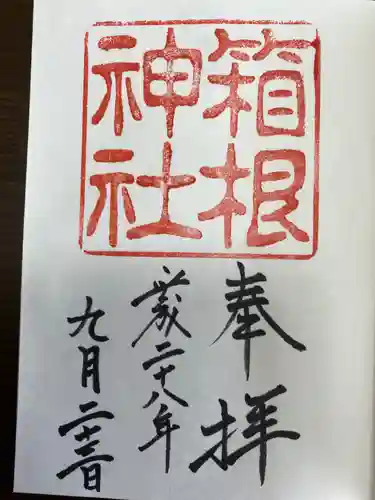 箱根
神社
奉拝
歳二十八年
九月二十三日